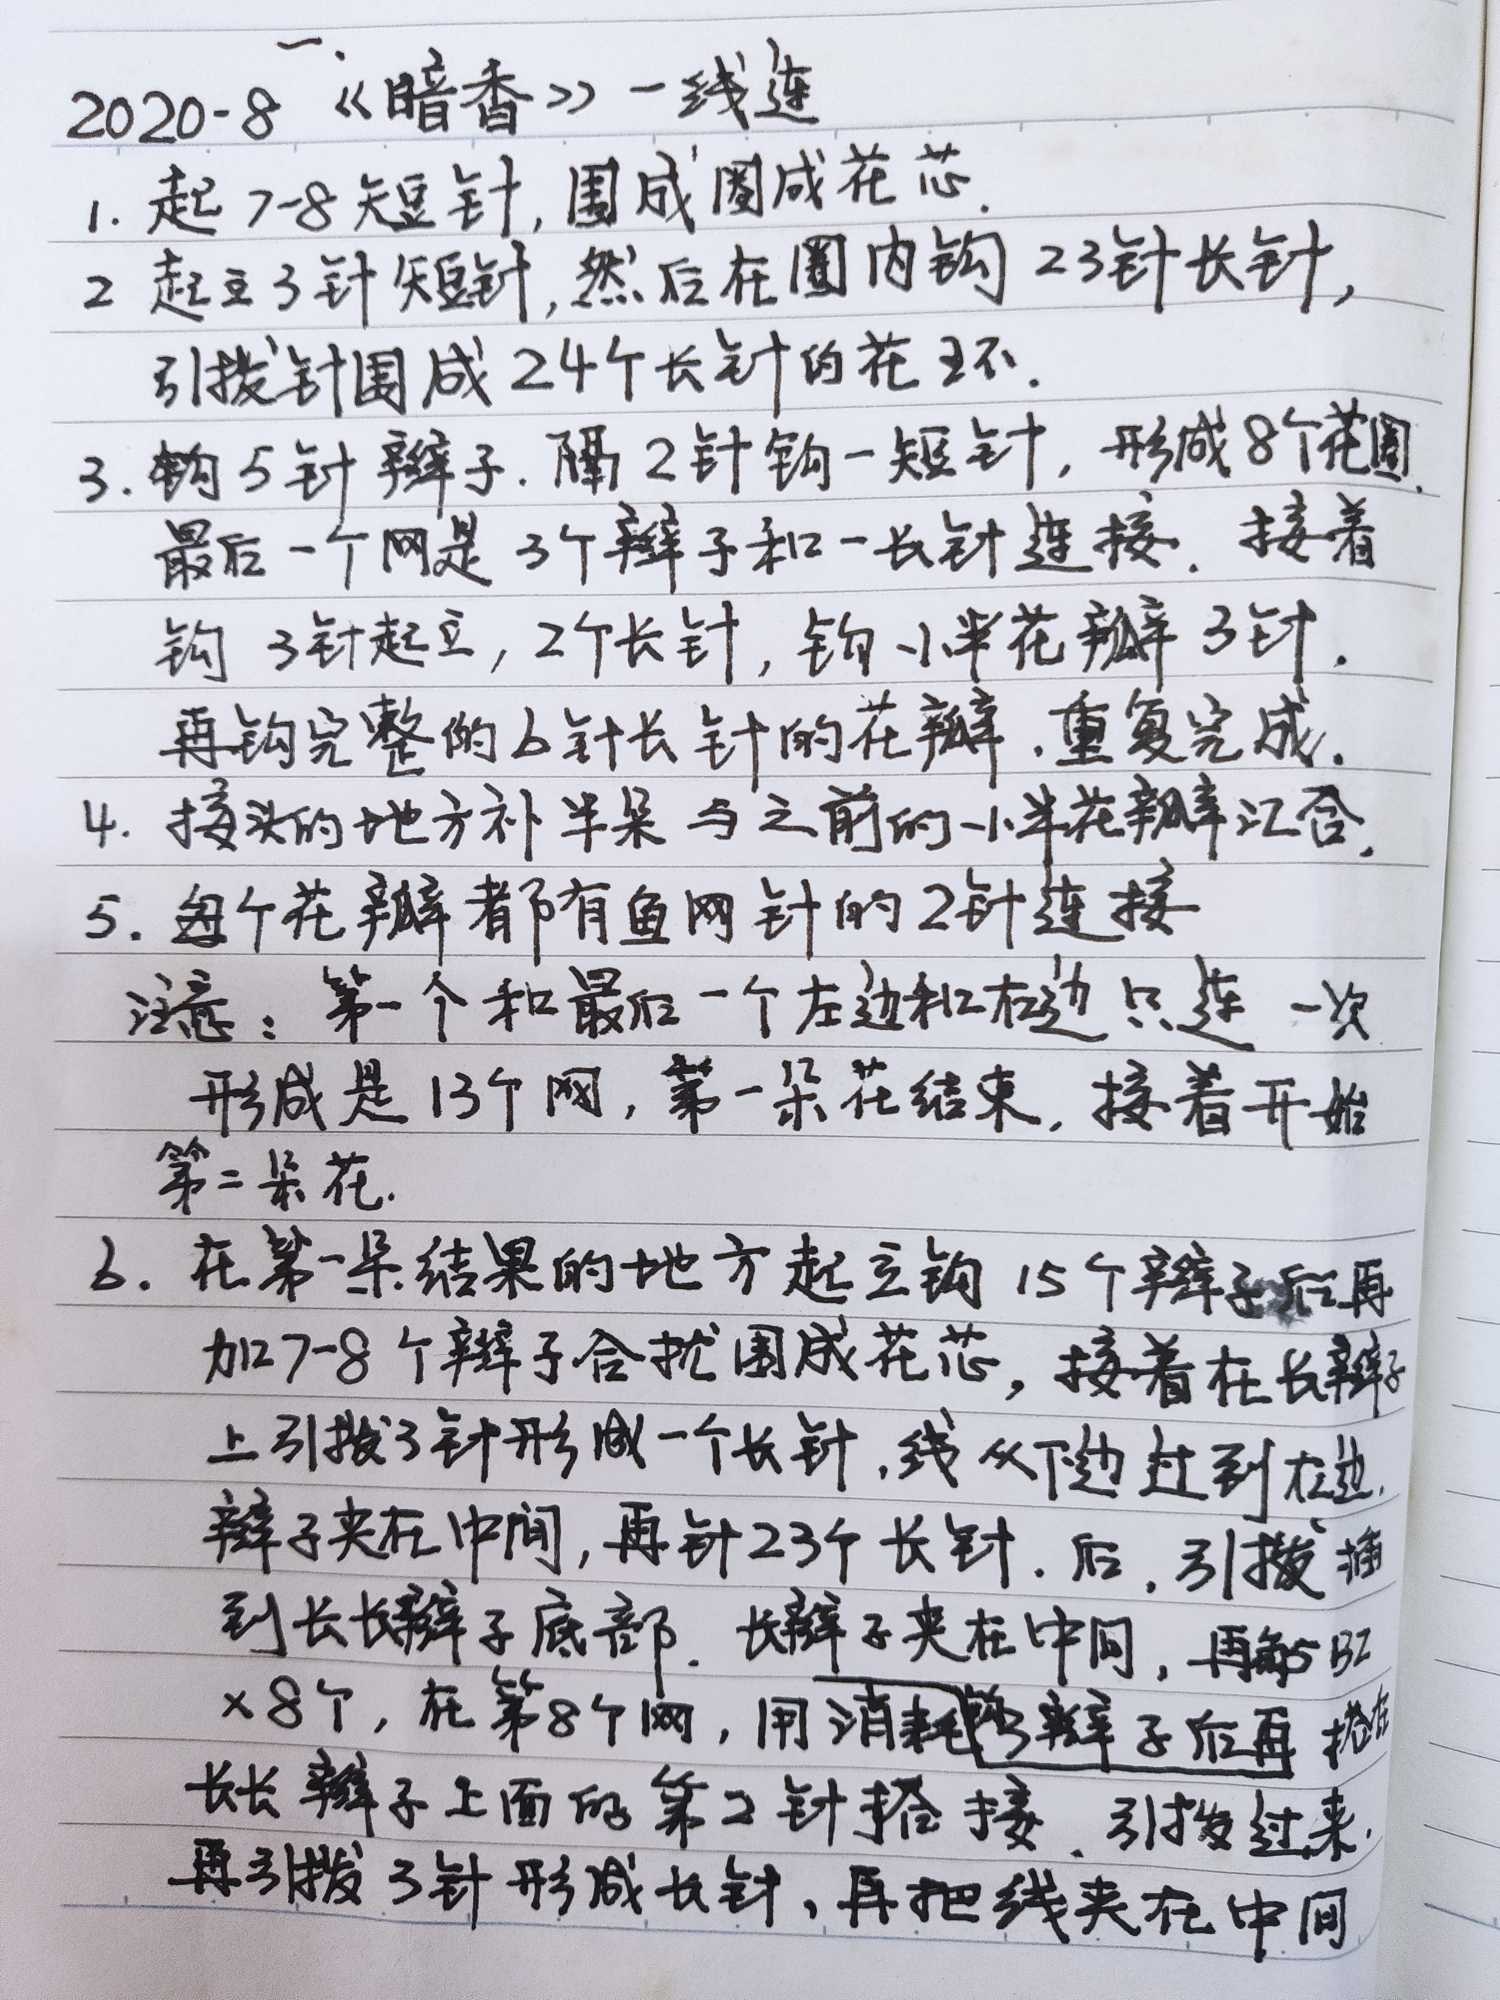 一、
2020-8 《暗香》一线连
1. 起7-8短针,围成圈成花芯.
2 起立3针短针,然后在圈内钩23针长针,
引拨针围成24个长针的花环.
3. 钩5针辫子.隔2针钩一短针,形成8个花圈.
最后一个网是3个辫子和一长针连接.接着
钩3针起立,2个长针,钩小半花瓣3针.
再钩完整的6针长针的花瓣.重复完成.
4. 接头的地方补半朵与之前的小半花瓣汇合.
5. 每个花瓣都有鱼网针的2针连接
注意:第一个和最后一个左边和右边只连一次
形成是13个网,第一朵花结束.接着开始
第二朵花.
6. 在第一朵结果的地方起立钩15个辫子后再
加7-8个辫子合扰围成花芯,接着在长辫子
上引拨3针形成一个长针.线从下边过到右边.
辫子夹在中间,再针23个长针.后.引拨插
到长长辫子底部.长辫子夹在中间,再
×8个,在第8个网,用消耗3辫子后再搭在
长长辫子上面的第2针搭接.引拨过来.
再引拨3针形成长针,再把线夹在中间